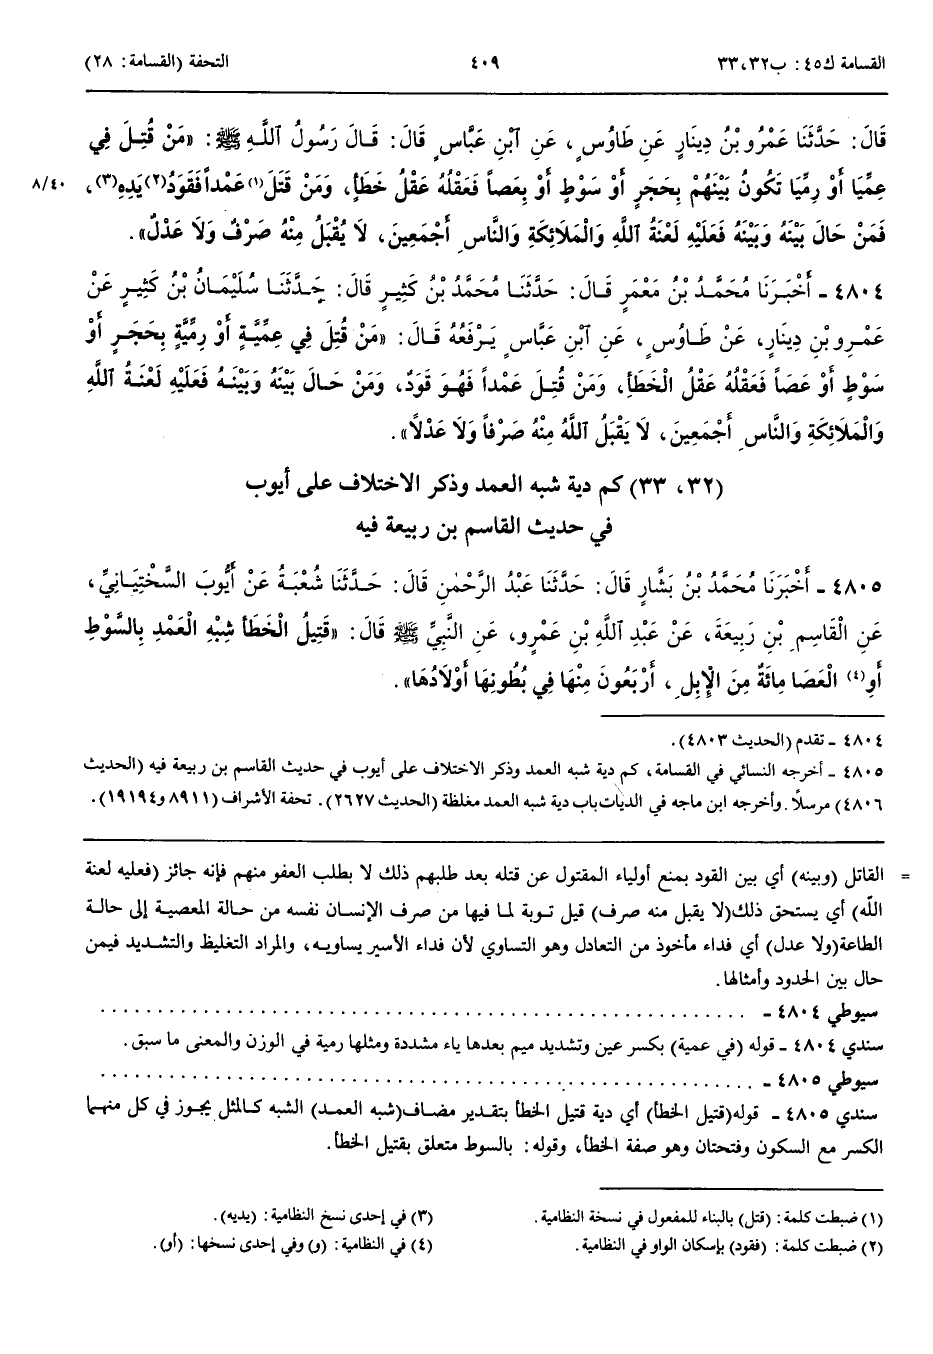 القسامة ك٤٥: ب٣٢،٣٣ ٤٠٩ التحفة (القسامة: ٢٨)
قَالَ: حَدَّثَنَا عَمْرُو بْنُ دِينَارٍ عَنِ طَاوُسٍ، عَنِ ٱبْنِ عَبَّاسٍ قَالَ: قَالَ رَسُولُ ٱللَّهِ ﷺ: «مَنْ قُتِلَ فِي
عِمِّيَا أَوْ رِمِّيَا تَكُونُ بَيْنَهُمْ بِحَجَرٍ أَوْ سَوْطٍ أَوْ بِعَصاً فَعَقْلُهُ عَقْلُ خَطَأٍ، وَمَنْ قَتَلَ(١) عَمْداً فَقَوَدُ(٢) يَدِهِ(٣)، ٨/٤٠
فَمَنْ حَالَ بَيْنَهُ وَبَيْنَهُ فَعَلَيْهِ لَعْنَةُ ٱللَّهِ وَالْمَلَائِكَةِ وَالنَّاسِ أَجْمَعِينَ، لَا يُقْبَلُ مِنْهُ صَرْفٌ وَلَا عَدْلٌ».
٤٨٠٤ - أَخْبَرَنَا مُحَمَّدُ بْنُ مَعْمَرٍ قَالَ: حَدَّثَنَا مُحَمَّدُ بْنُ كَثِيرٍ قَالَ: حَدَّثَنَا سُلَيْمَانُ بْنُ كَثِيرٍ عَنْ
عَمْرِو بْنِ دِينَارٍ، عَنْ طَاوُسٍ، عَنِ ٱبْنِ عَبَّاسٍ يَرْفَعُهُ قَالَ: «مَنْ قُتِلَ فِي عِمِّيَّةٍ أَوْ رِمِّيَّةٍ بِحَجَرٍ أَوْ
سَوْطٍ أَوْ عَصًا فَعَقْلُهُ عَقْلُ الْخَطَأِ، وَمَنْ قُتِلَ عَمْداً فَهُوَ قَوَدٌ، وَمَنْ حَالَ بَيْنَهُ وَبَيْنَهُ فَعَلَيْهِ لَعْنَةُ ٱللَّهِ
وَالْمَلَائِكَةِ وَالنَّاسِ أَجْمَعِينَ، لَا يَقْبَلُ ٱللَّهُ مِنْهُ صَرْفاً وَلَا عَدْلاً».
(٣٢، ٣٣) كم دية شبه العمد وذكر الاختلاف على أيوب
في حديث القاسم بن ربيعة فيه
٤٨٠٥ - أَخْبَرَنَا مُحَمَّدُ بْنُ بَشَّارٍ قَالَ: حَدَّثَنَا عَبْدُ الرَّحْمٰنِ قَالَ: حَدَّثَنَا شُعْبَةُ عَنْ أَيُّوبَ السَّخْتِيَانِيِّ،
عَنِ الْقَاسِمِ بْنِ رَبِيعَةَ، عَنْ عَبْدِ ٱللَّهِ بْنِ عَمْرٍو، عَنِ النَّبِيِّ ﷺ قَالَ: «قَتِيلُ الْخَطَأِ شِبْهِ الْعَمْدِ بِالسَّوْطِ
أَوِ(٤) الْعَصَا مِائَةٌ مِنَ الْإِبِلِ، أَرْبَعُونَ مِنْهَا فِي بُطُونِهَا أَوْلَادُهَا».
٤٨٠٤ - تقدم (الحديث ٤٨٠٣).
٤٨٠٥ - أخرجه النسائي في القسامة، كم دية شبه العمد وذكر الاختلاف على أيوب في حديث القاسم بن ربيعة فيه (الحديث
٤٨٠٦) مرسلاً. وأخرجه ابن ماجه في الديات باب دية شبه العمد مغلظة (الحديث ٢٦٢٧). تحفة الأشراف (٨٩١١ و١٩١٩٤).
= القاتل (وبينه) أي بين القود بمنع أولياء المقتول عن قتله بعد طلبهم ذلك لا بطلب العفو منهم فإنه جائز (فعليه لعنة
الله) أي يستحق ذلك(لا يقبل منه صرف) قيل توبة لما فيها من صرف الإنسان نفسه من حالة المعصية إلى حالة
الطاعة(ولا عدل) أي فداء مأخوذ من التعادل وهو التساوي لأن فداء الأسير يساويه، والمراد التغليظ والتشديد فيمن
حال بين الحدود وأمثالها.
سيوطي ٤٨٠٤ - ................................................
سندي ٤٨٠٤ - قوله (في عمية) بكسر عين وتشديد ميم بعدها ياء مشددة ومثلها رمية في الوزن والمعنى ما سبق.
سيوطي ٤٨٠٥ - ................................................
سندي ٤٨٠٥ - قوله(قتيل الخطأ) أي دية قتيل الخطأ بتقدير مضاف(شبه العمد) الشبه كالمثل يجوز في كل منهما
الكسر مع السكون وفتحتان وهو صفة الخطأ، وقوله: بالسوط متعلق بقتيل الخطأ.
(١) ضبطت كلمة: (قتل) بالبناء للمفعول في نسخة النظامية. (٣) في إحدى نسخ النظامية: (يديه).
(٢) ضبطت كلمة: (فقود) بإسكان الواو في النظامية. (٤) في النظامية: (و) وفي إحدى نسخها: (أو).